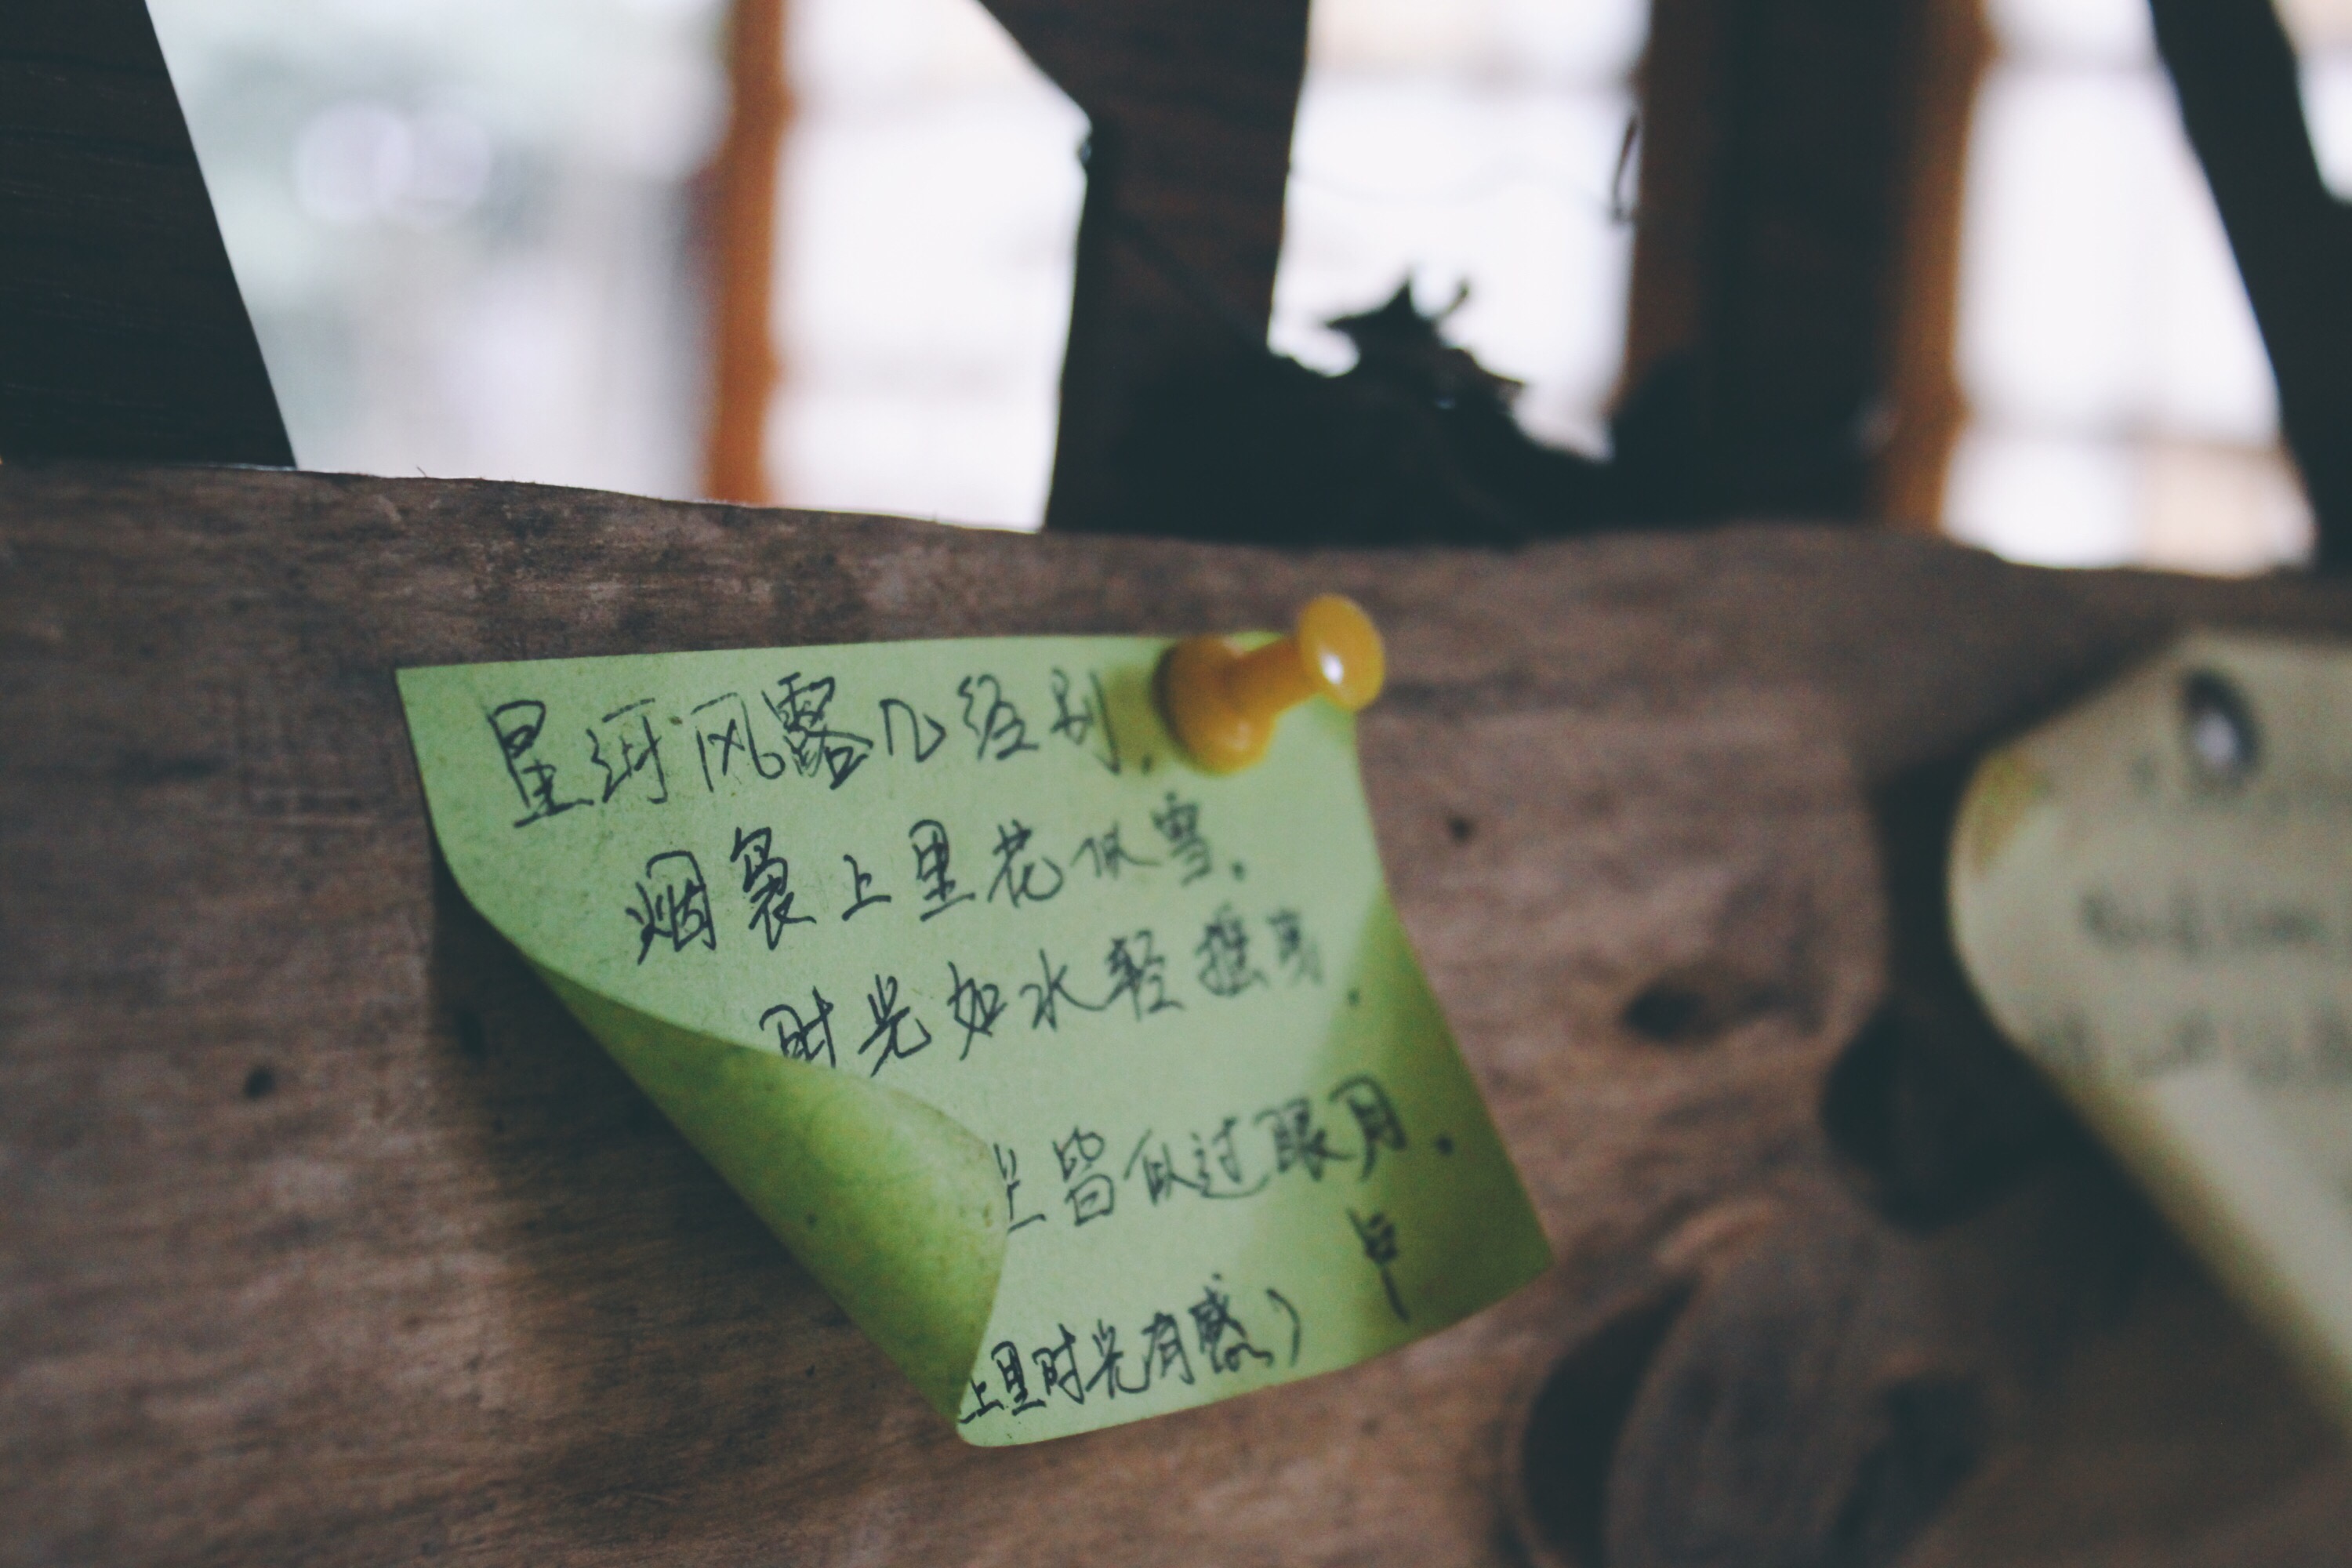 星河风露几经别.
烟袅上里花似雪.
时光如水轻摇曳.
尘皆似过眼月.
上里时光有感)